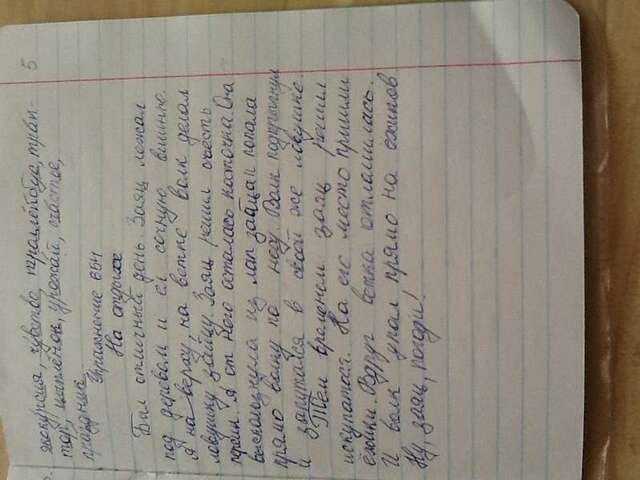 экскурсия, чувство, троллейбус, трак-
тор, цыплёнок, урожай, счастье,
праздник.
Упражнение 654
На отдыхе
Был отличный день. Заяц лежал
под деревом и ел сочную вишню.
А на верху, на ветке волк делал
ловушку зайцу. Заяц решил съесть
персик. А от него осталась косточка. Она
выскользнула из лап зайца и попала
прямо волку по носу. Волк подпрыгнул
и запутался в своей же ловушке.
Тем временем заяц решил
искупатся. На его место пришли
ёжики. Вдруг ветка отломилась.
И волк упал прямо на ежиков
Ну, заяц, погоди!
5